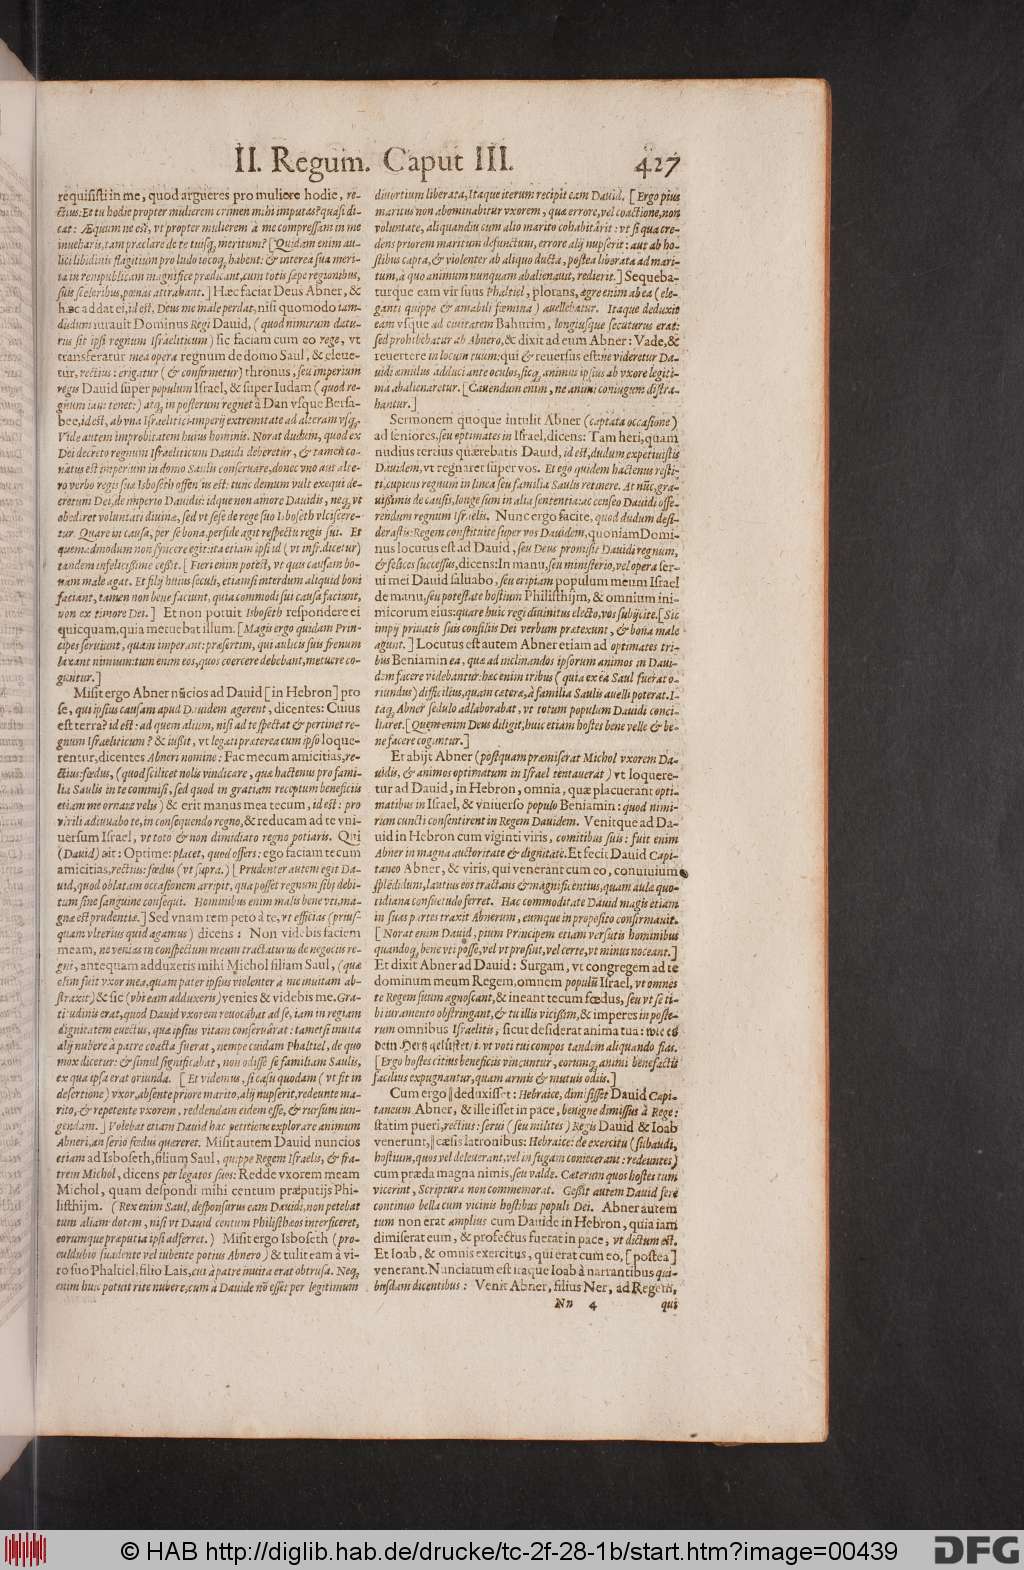 II. Regum. Caput III. 427
requisisti in me, quod argueres pro muliere hodie, re-
ctius: Et tu hodie propter mulierem crimen mihi imputas? quasi di-
cat: Æquum ne est, vt propter mulierem à me compressam in me
inueharis, tam præclare de te tuisq; meritum? [Quidam enim au-
lici libidinis flagitium pro ludo iocoq; habent: & interea sua meri-
ta in rempublicam magnifice prædicant, cum totis sæpe regionibus,
suis sceleribus, pœnas attrahant.] Hæc faciat Deus Abner, &
hæc addat ei, id est, Deus me male perdat, nisi quomodo iam-
dudum iurauit Dominus Regi Dauid, (quod nimirum datu-
rus sit ipsi regnum Israeliticum) sic faciam cum eo rege, vt
transferatur mea opera regnum de domo Saul, & eleue-
tur, rectius: erigatur (& confirmetur) thronus, seu imperium
regis Dauid super populum Israel, & super Iudam (quod re-
gnum iam tenet:) atq; in posterum regnet à Dan vsque Bersa-
bee, id est, ab vna Israelitici imperij extremitate ad alteram vsq;.
Vide autem improbitatem huius hominis. Norat dudum, quod ex
Dei decreto regnum Israeliticum Dauidi deberetur, & tamen co-
natus est imperium in domo Saulis conseruare, donec vno aut alte-
ro verbo regis sui Isboseth offensus est: tunc demum vult exequi de-
cretum Dei, de imperio Dauidis: idque non amore Dauidis, neq; vt
obediret voluntati diuinæ, sed vt sese de rege suo Isboseth vlciscere-
tur. Quare in causa, per se bona, perfide agit respectu regis sui. Et
quemadmodum non syncere egit: ita etiam ipsi id (vt infr. dicetur)
tandem infelicissime cessit. [Fieri enim potest, vt quis causam bo-
nam male agat. Et filij huius seculi, etiamsi interdum aliquid boni
faciant, tamen non bene faciunt, quia commodi sui causa faciunt,
non ex timore Dei.] Et non potuit Isboseth respondere ei
quicquam, quia metuebat illum. [Magis ergo quidam Prin-
cipes seruiunt, quam imperant: præsertim, qui aulicis suis frenum
laxant nimium: tum enim eos, quos coercere debebant, metuere co-
guntur.]
Misit ergo Abner nũcios ad Dauid [in Hebron] pro
se, qui ipsius causam apud Dauidem agerent, dicentes: Cuius
est terra? id est: ad quem alium, nisi ad te spectat & pertinet re-
gnum Israeliticum? & iussit, vt legati præterea cum ipso loque-
rentur, dicentes Abneri nomine: Fac mecum amicitias, re-
ctius: fœdus, (quod scilicet nolis vindicare, quæ hactenus pro fami-
lia Saulis in te commisi, sed quod in gratiam receptum beneficiis
etiam me ornare velis) & erit manus mea tecum, id est: pro
virili adiuuabo te, in consequendo regno, & reducam ad te vni-
uersum Israel, vt toto & non dimidiato regno potiaris. Qui
(Dauid) ait: Optime: placet, quod offers: ego faciam tecum
amicitias, rectius: fœdus (vt supra.) [Prudenter autem egit Da-
uid, quod oblatam occasionem arripit, qua posset regnum sibi debi-
tum sine sanguine consequi. Hominibus enim malis bene vti, ma-
gnæ est prudentiæ.] Sed vnam rem peto à te, vt efficias (prius-
quam vlterius quid agamus) dicens: Non videbis faciem
meam, ne venias in conspectum meum tractaturus de negocijs re-
gni, antequam adduxeris mihi Michol filiam Saul, (quæ
olim fuit vxor mea, quam pater ipsius violenter a me inuitam ab-
straxit) & sic (vbi eam adduxeris) venies & videbis me. Gra-
titudinis erat, quod Dauid vxorem reuocabat ad se, iam in regiam
dignitatem euectus, quæ ipsius vitam conseruârat: tametsi inuita
alij nubere à patre coacta fuerat, nempe cuidam Phaltiel, de quo
mox dicetur: & simul significabat, non odisse se familiam Saulis,
ex qua ipsa erat oriunda. [Et videmus, si casu quodam (vt fit in
desertione) vxor, absente priore marito, alij nupserit, redeunte ma-
rito, & repetente vxorem, reddendam eidem esse, & rursum iun-
gendam.] Volebat etiam Dauid hac petitione explorare animum
Abneri, an serio fœdus quæreret. Misit autem Dauid nuncios
etiam ad Isboseth, filium Saul, quippe Regem Israelis, & fra-
trem Michol, dicens per legatos suos: Redde vxorem meam
Michol, quam despondi mihi centum præputijs Phi-
listhijm. (Rex enim Saul, desponsurus eam Dauidi, non petebat
tum aliam dotem, nisi vt Dauid centum Philisthæos interficeret,
eorumque præputia ipsi adferret.) Misit ergo Isboseth (pro-
culdubio suadente vel iubente potius Abnero) & tulit eam à vi-
ro suo Phaltiel, filio Lais, cui à patre inuita erat obtrusa. Neq;
enim huic potuit rite nubere, cum à Dauide nõ esset per legitimum
diuortium liberata, Itaque iterum recipit eam Dauid. [Ergo pius
maritus non abominabitur vxorem, quæ errore, vel coactione, non
voluntate, aliquandiu cum alio marito cohabitârit: vt si qua cre-
dens priorem maritum defunctum, errore alij nupserit: aut ab ho-
stibus capta, & violenter ab aliquo ducta, postea liberata ad mari-
tum, à quo animum nunquam abalienauit, redierit.] Sequeba-
turque eam vir suus Phaltiel, plorans, ægre enim ab ea (ele-
ganti quippe & amabili fœmina) auellebatur. Itaque deduxit
eam vsque ad ciuitatem Bahurim, longiusque secuturus erat:
sed prohibebatur ab Abnero, & dixit ad eum Abner: Vade, &
reuertere in locum tuum: qui & reuersus est: ne videretur Da-
uidi æmulus adduci ante oculos, sicq; animus ipsius ab vxore legiti-
ma, abalienaretur. [Cauendum enim, ne animi coniugum distra-
hantur.]
Sermonem quoque intulit Abner (captata occasione)
ad seniores, seu optimates in Israel, dicens: Tam heri, quam
nudius tertius quærebatis Dauid, id est, dudum expetiuistis
Dauidem, vt regnaret super vos. Et ego quidem hactenus resti-
ti, cupiens regnum in linea seu familia Saulis retinere. At nũc, gra-
uissimis de causis, longe sum in alia sententia: ac censeo Dauidi offe-
rendum regnum Israelis. Nunc ergo facite, quod dudum desi-
derastis: Regem constituite super vos Dauidem, quoniam Domi-
nus locutus est ad Dauid, seu Deus promisit Dauidi regnum,
& felices successus, dicens: In manu, seu ministerio, vel opera ser-
ui mei Dauid saluabo, seu eripiam populum meum Israel
de manu, seu potestate hostium Philisthijm, & omnium ini-
micorum eius: quare huic regi diuinitus electo, vos subijcite. [Sic
impij priuatis suis consiliis Dei verbum prætexunt, & bona male
agunt.] Locutus est autem Abner etiam ad optimates tri-
bus Beniamin ea, quæ ad inclinandos ipsorum animos in Daui-
dem facere videbantur: hac enim tribus (quia ex ea Saul fuerat o-
riundus) difficilius, quam cæteræ, à familia Saulis auelli poterat. I-
taq; Abner sedulo adlaborabat, vt totum populum Dauidi conci-
liaret. [Quem enim Deus diligit, huic etiam hostes bene velle & be-
ne facere coguntur.]
Et abijt Abner (postquam præmiserat Michol vxorem Da-
uidis, & animos optimatum in Israel tentauerat) vt loquere-
tur ad Dauid, in Hebron, omnia, quæ placuerant opti-
matibus in Israel, & vniuerso populo Beniamin: quod nimi-
rum cuncti consentirent in Regem Dauidem. Venitque ad Da-
uid in Hebron cum viginti viris, comitibus suis: fuit enim
Abner in magna auctoritate & dignitate. Et fecit Dauid Capi-
taneo Abner, & viris, qui venerant cum eo, conuiuium
splẽdidum, lautius eos tractans & magnificentius, quam aulæ quo-
tidiana consuetudo ferret. Hac commoditate Dauid magis etiam
in suas partes traxit Abnerum, eumque in proposito confirmauit.
[Norat enim Dauid, pium Principem etiam versutis hominibus
quandoq; bene vti posse, vel vt prosint, vel certe, vt minus noceant.]
Et dixit Abner ad Dauid: Surgam, vt congregem ad te
dominum meum Regem, omnem populũ Israel, vt omnes
te Regem suum agnoscant, & ineant tecum fœdus, seu vt se ti-
bi iuramento obstringant, & tu illis vicissim, & imperes in poste-
rum omnibus Israelitis, sicut desiderat anima tua: wie es
dein Hertz gelüstet / i. vt voti tui compos tandem aliquando fias.
[Ergo hostes citius beneficiis vincuntur, eorumq; animi benefactis
facilius expugnantur, quam armis & mutuis odiis.]
Cum ergo ‖ deduxisset: Hebraice, dimisisset Dauid Capi-
taneum Abner, & ille isset in pace, benigne dimissus à Rege:
statim pueri, rectius: serui (seu milites) Regis Dauid & Ioab
venerunt, ‖ cæsis latronibus: Hebraice: de exercitu (subaudi,
hostium, quos vel deleuerant, vel in fugam coniecerant: redeuntes)
cum præda magna nimis, seu valde. Cæterum quos hostes tum
vicerint, Scriptura non commemorat. Gessit autem Dauid fere
continuo bella cum vicinis hostibus populi Dei. Abner autem
tum non erat amplius cum Dauide in Hebron, quia iam
dimiserat eum, & profectus fuerat in pace, vt dictum est.
Et Ioab, & omnis exercitus, qui erat cum eo, [postea]
venerant. Nunciatum est itaque Ioab à narrantibus qui-
busdam dicentibus: Venit Abner, filius Ner, ad Regem,
Nn 4 qui
© HAB http://diglib.hab.de/drucke/tc-2f-28-1b/start.htm?image=00439
DFG